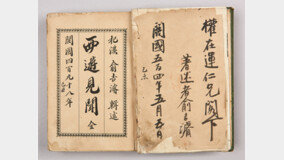 權在運仁兄閣下
著述者俞吉濬
開國五百四年五月五日
乙未
杞溪 俞吉濬 輯述
西遊見聞 全
開國四百九十八年